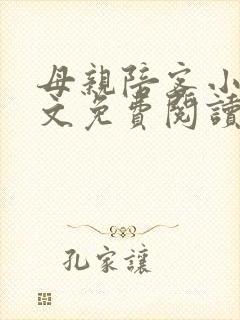 母親陪客小
文免費閱讀
孔家讓